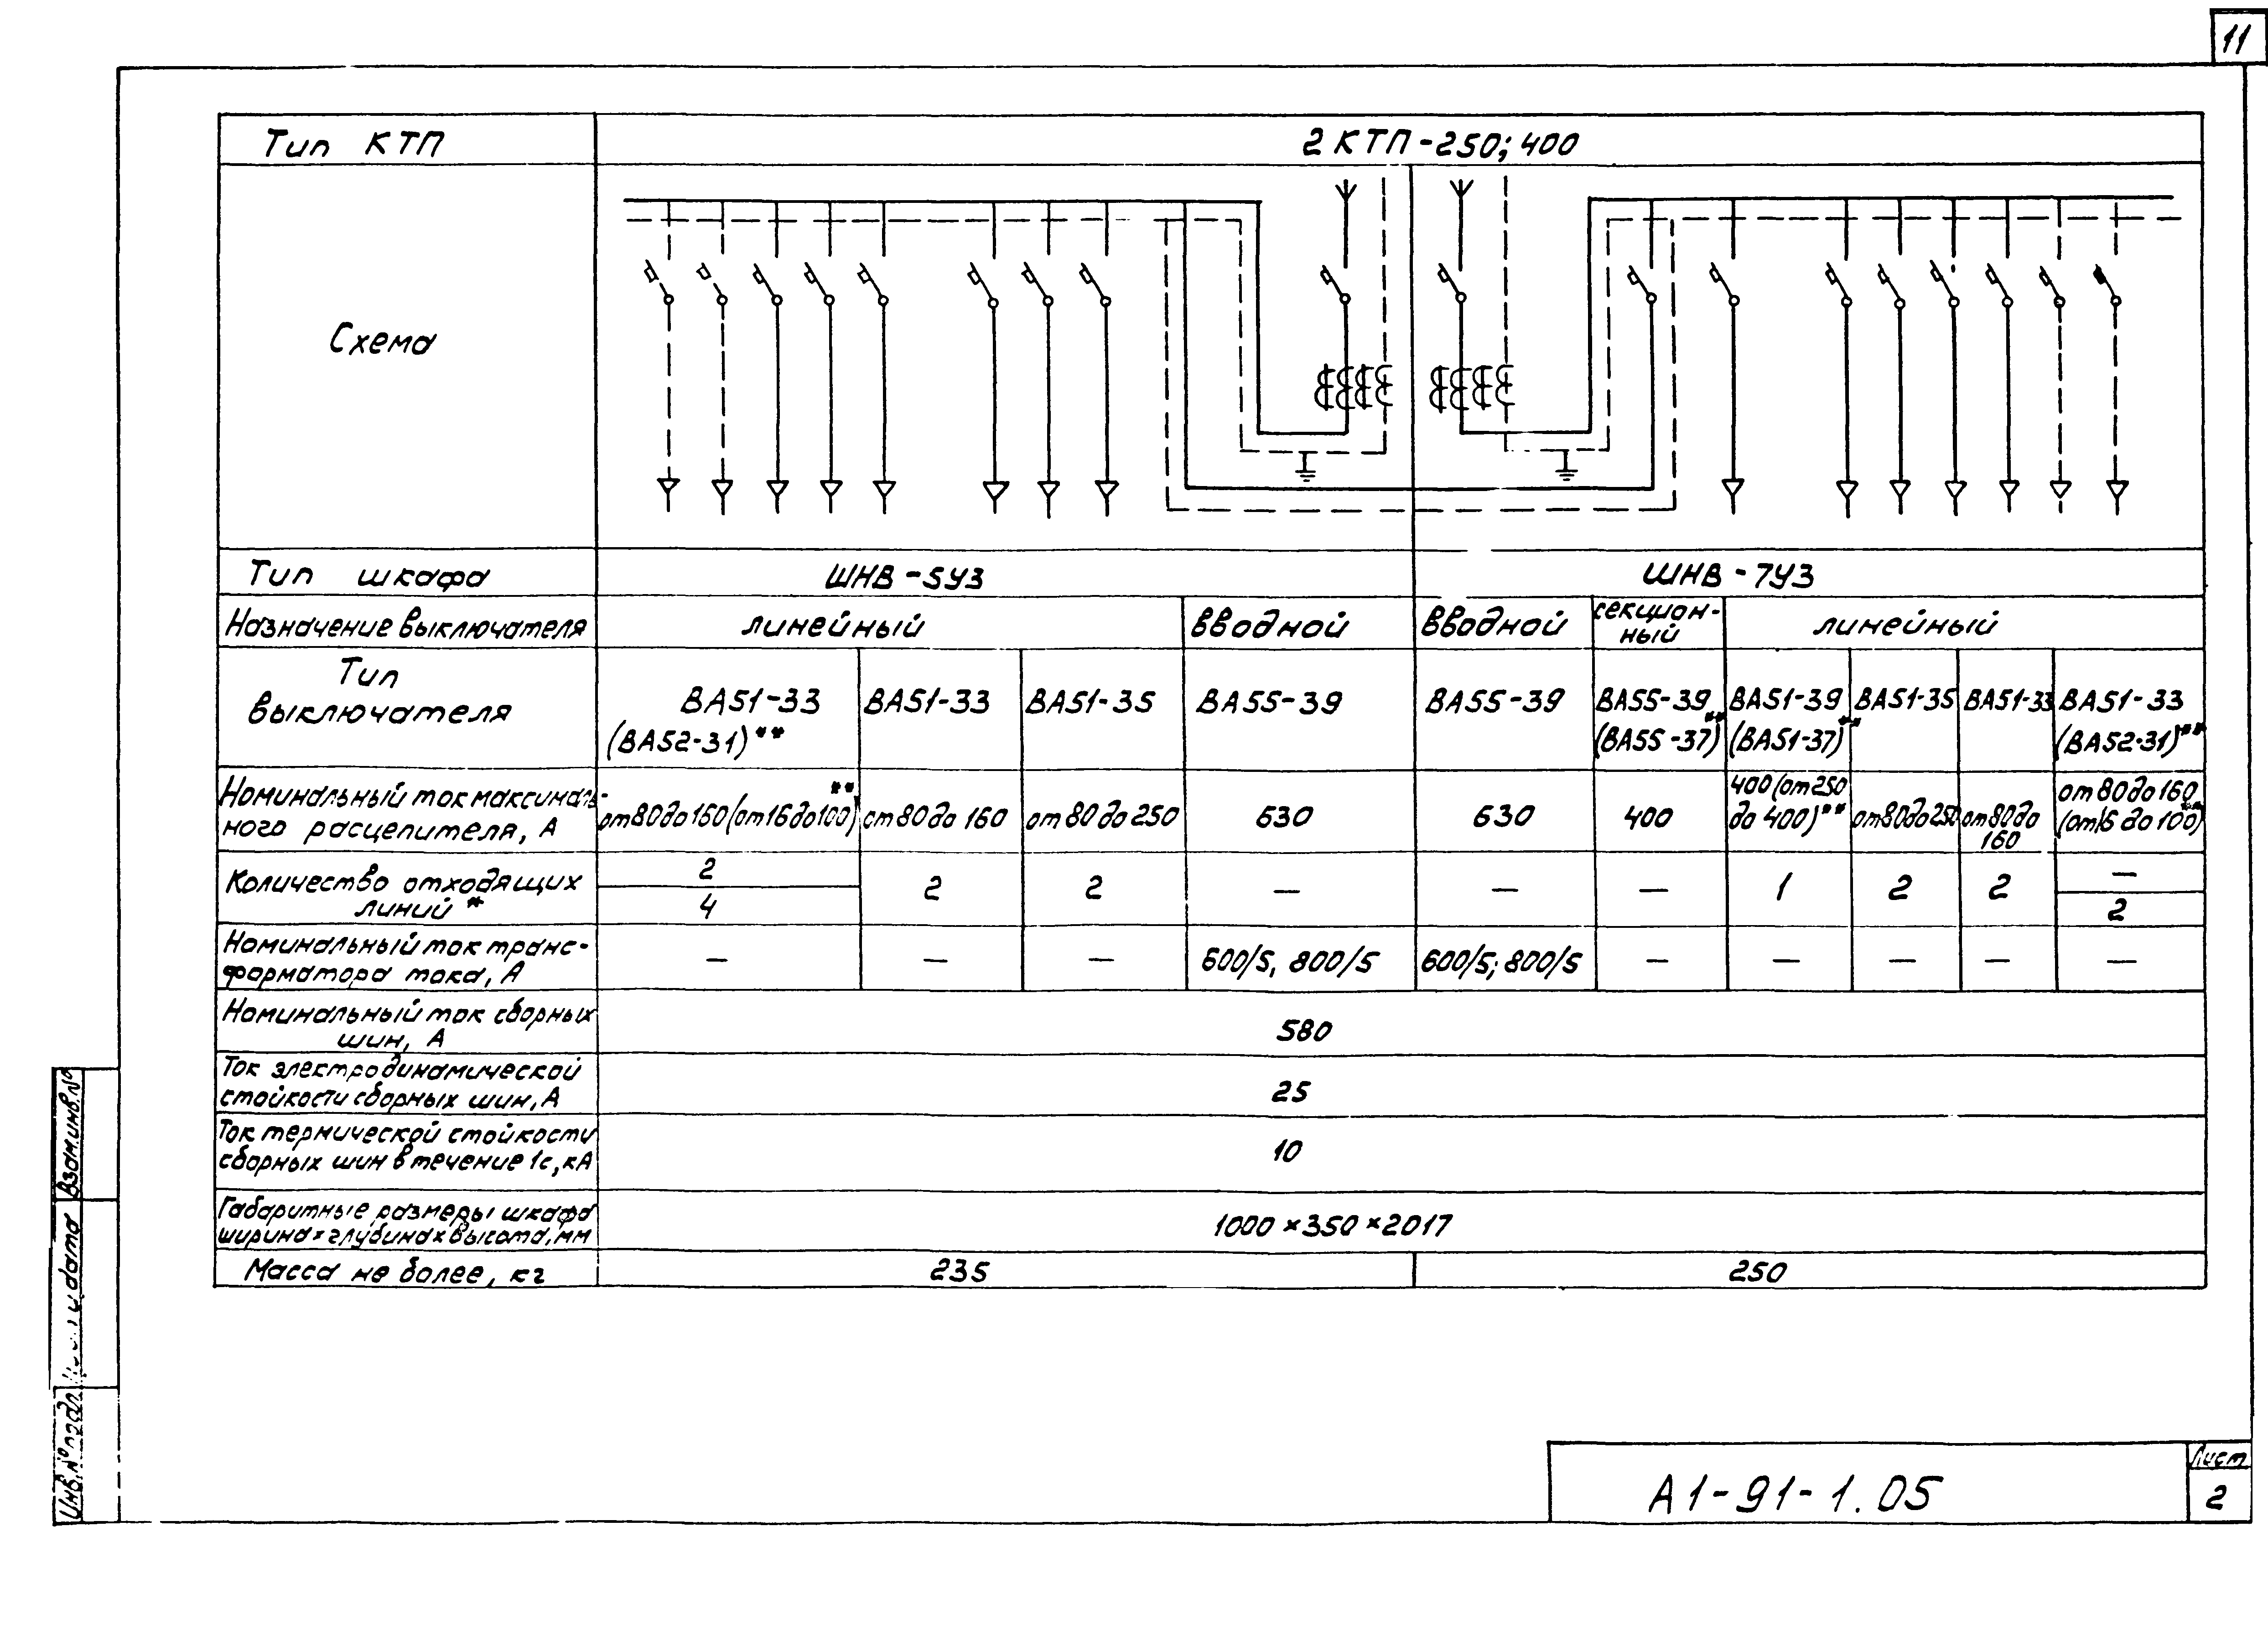 11
Тип КТП
2 КТП-250; 400
Схема
Тип шкафа
ШНВ-5У3
ШНВ-7У3
Назначение выключателя
линейный
вводной
вводной
секцион-
ный
линейный
Тип
выключателя
ВА51-33
(ВА52-31)**
ВА51-33
ВА51-35
ВА55-39
ВА55-39
ВА55-39
(ВА55-37)**
ВА51-39
(ВА51-37)**
ВА51-35
ВА51-33
ВА51-33
(ВА52-31)**
Номинальный ток максималь-
ного расцепителя, А
от 80 до 160 (от 16 до 100)**
от 80 до 160
от 80 до 250
630
630
400
400 (от 250
до 400)**
от 80 до 250
от 80 до
160
от 80 до 160
(от 16 до 100)**
Количество отходящих
линий *
2
4
2
2
—
—
—
1
2
2
—
2
Номинальный ток транс-
форматора тока, А
—
—
—
600/5, 800/5
600/5; 800/5
—
—
—
—
—
Номинальный ток сборных
шин, А
580
Ток электродинамической
стойкости сборных шин, А
25
Ток термической стойкости
сборных шин в течение 1с, кА
10
Габаритные размеры шкафа
ширина×глубина×высота, мм
1000×350×2017
Масса не более, кг
235
250
Взам.инв.№
и дата
Инв.№ подл.
А1-91-1.05
Лист
2